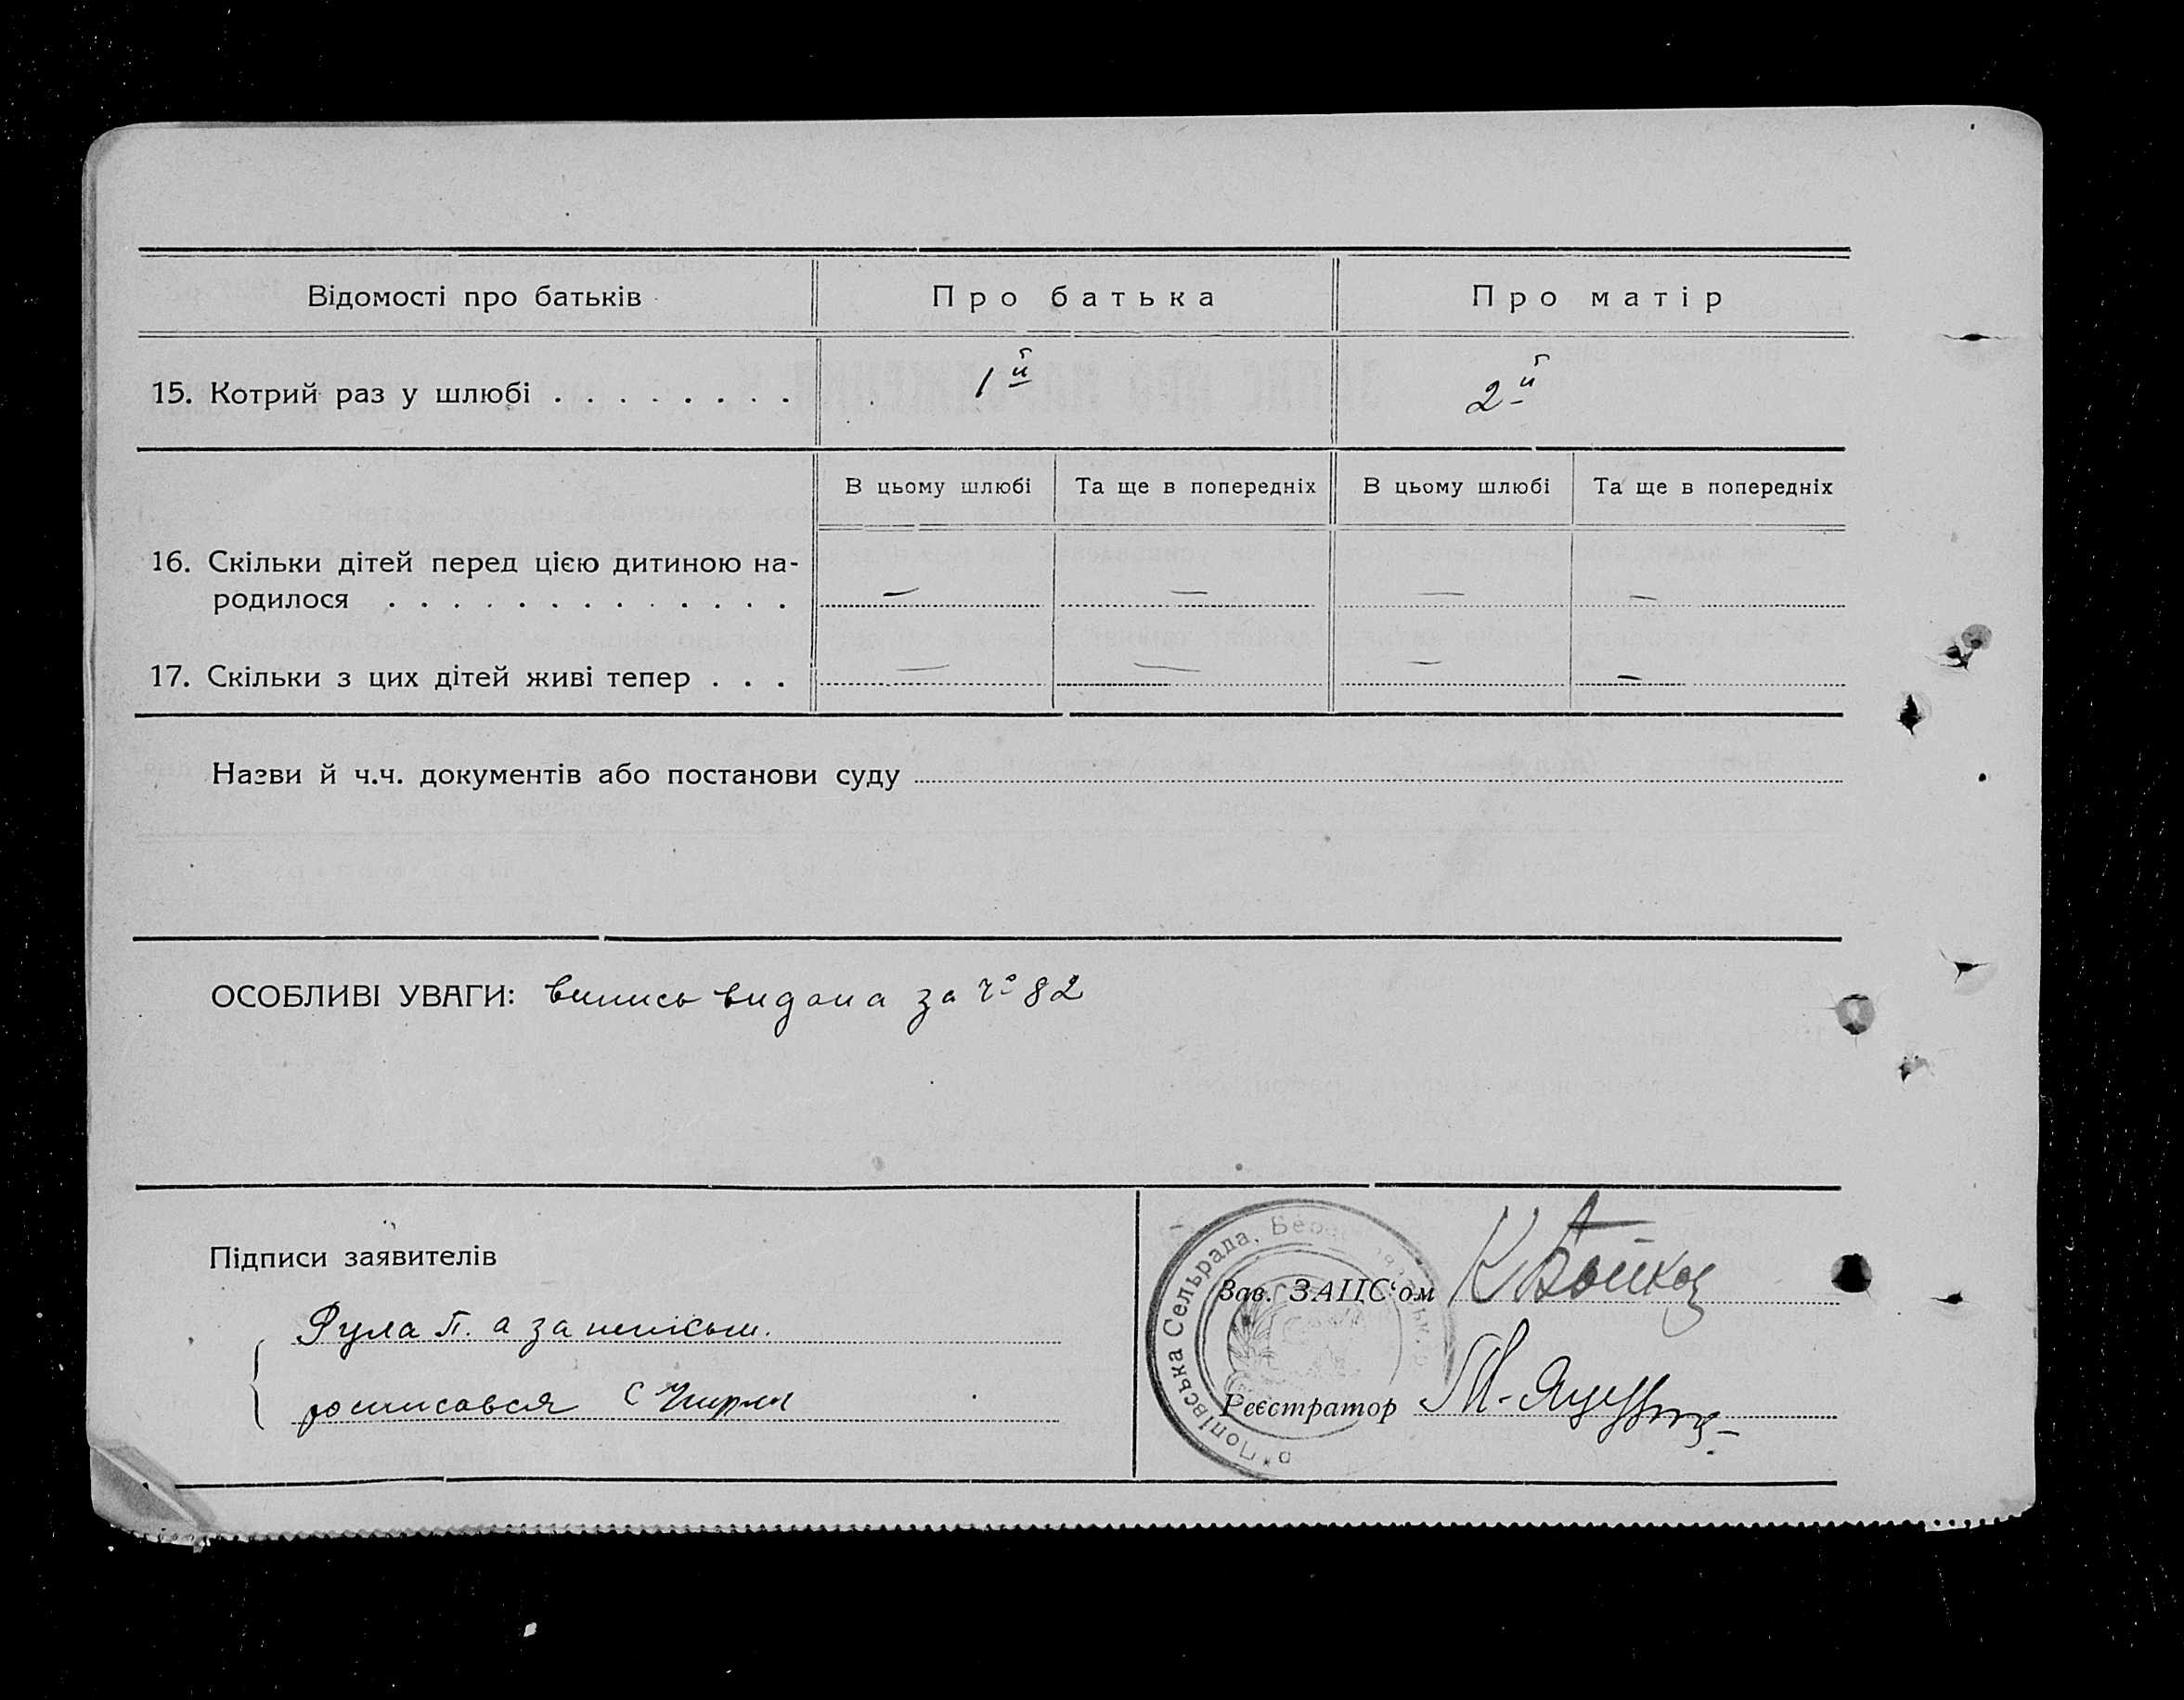 Відомості про батьків Про батька Про матір
15. Котрий раз у шлюбі . . . . . . . . . 1й 2й
В цьому шлюбі Та ще в попередніх В цьому шлюбі Та ще в попередніх
16. Скільки дітей перед цією дитиною на-
родилося . . . . . . . . . . . . . . — — — —
17. Скільки з цих дітей живі тепер . . . — — — —
Назви й ч.ч. документів або постанови суду
ОСОБЛИВІ УВАГИ: випись видана за № 82
Підписи заявителів
Рула П. а за
росписався С
Зав. ЗАЦС'ом К Бойко
Реєстратор М.
Попівська Сельрада,